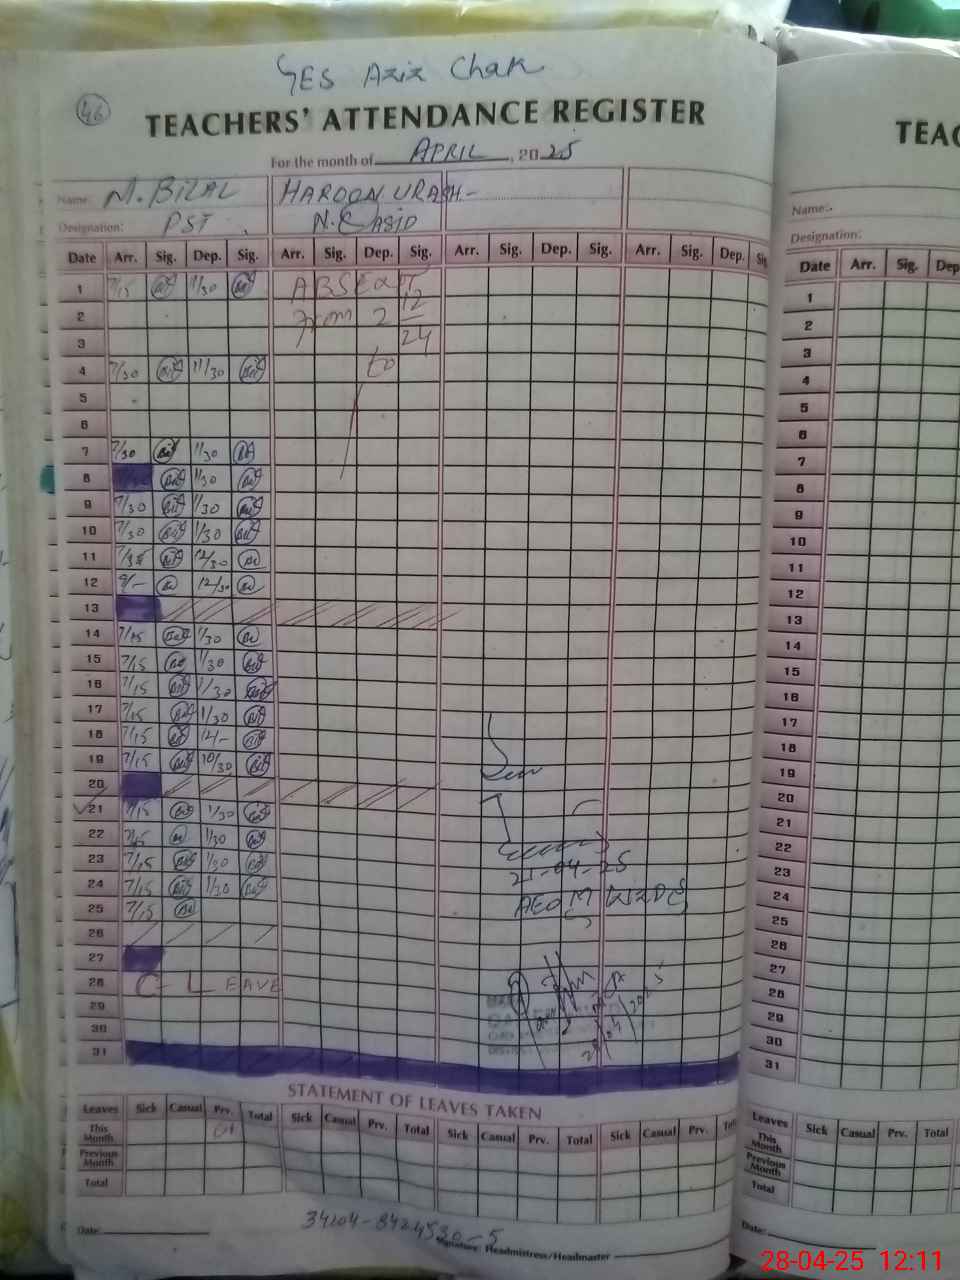 GES Aziz Chak
46
TEACHERS' ATTENDANCE REGISTER
For the month of APRIL, 2025
Name: M. BILAL HAROON URASH-
Designation: PST N.QASID
Date Arr. Sig. Dep. Sig. Arr. Sig. Dep. Sig. Arr. Sig. Dep. Sig. Arr. Sig. Dep. Sig.
1 7/15 1/30 ABSENT
2 From 2 12
3 24
4 7/30 11/30 to
5
6
7 7/30 1/30
8 1/30
9 7/30 1/30
10 7/30 1/30
11 12/30
12 9/- 12/30
13
14 7/15 1/30
15 7/15 1/30
16 7/15 1/30
17 7/15 1/30
18 7/15 12/-
19 7/15 10/30
20
21 7/15 1/30
22 7/15 1/30
23 7/15 1/30 21-04-25
24 7/15 1/30 AEO M
25 7/15
26
27
28 C- LEAVE
29
30
31
STATEMENT OF LEAVES TAKEN
Leaves Sick Casual Prv. Total Sick Casual Prv. Total Sick Casual Prv. Total Sick Casual Prv. Total
This Month 01
Previous Month
Total
34104-8424530-5
Date: Signature: Headmistress/Headmaster
TEAC
Name:-
Designation:
Date Arr. Sig. Dep
1
2
3
4
5
6
7
8
9
10
11
12
13
14
15
16
17
18
19
20
21
22
23
24
25
26
27
28
29
30
31
Leaves Sick Casual Prv. Total
This Month
Previous Month
Total
Date:
28-04-25 12:11